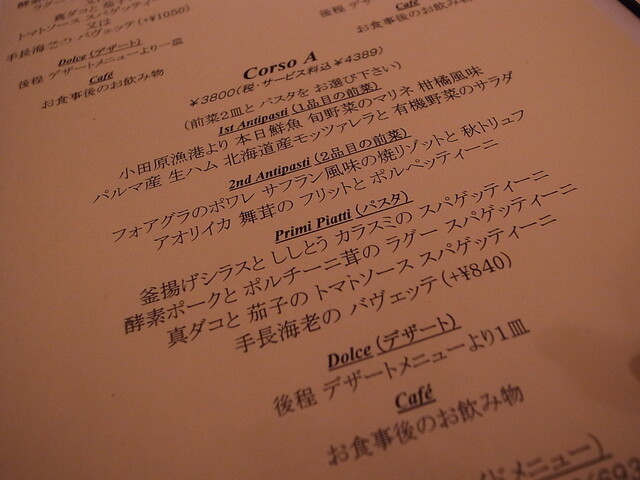 真ダコと
スパゲッティーニ
トマトソース スパゲッティーニ
又は
手長海老の バヴェッテ (+¥1050)
Dolce (デザート)
後程 デザートメニューより一皿
Café
お食事後のお飲み物
後程 デザ
Café
お食事後のお飲み
Corso A
¥3800(税・サービス料込¥4389)
(前菜2皿と パスタを お選び下さい)
1st Antipasti (1品目の前菜)
小田原漁港より 本日鮮魚 旬野菜のマリネ 柑橘風味
パルマ産 生ハム 北海道産モッツァレラと 有機野菜のサラダ
2nd Antipasti (2品目の前菜)
フォアグラのポワレ サフラン風味の焼リゾットと 秋トリュフ
アオリイカ 舞茸の フリットと ポルペッティーニ
Primi Piatti (パスタ)
釜揚げシラスと ししとう カラスミの スパゲッティーニ
酵素ポークと ポルチーニ茸の ラグー スパゲッティーニ
真ダコと 茄子の トマトソース スパゲッティーニ
手長海老の バヴェッテ (+¥840)
Dolce (デザート)
後程 デザートメニューより1皿
Café
お食事後のお飲み物
ドメニュー)